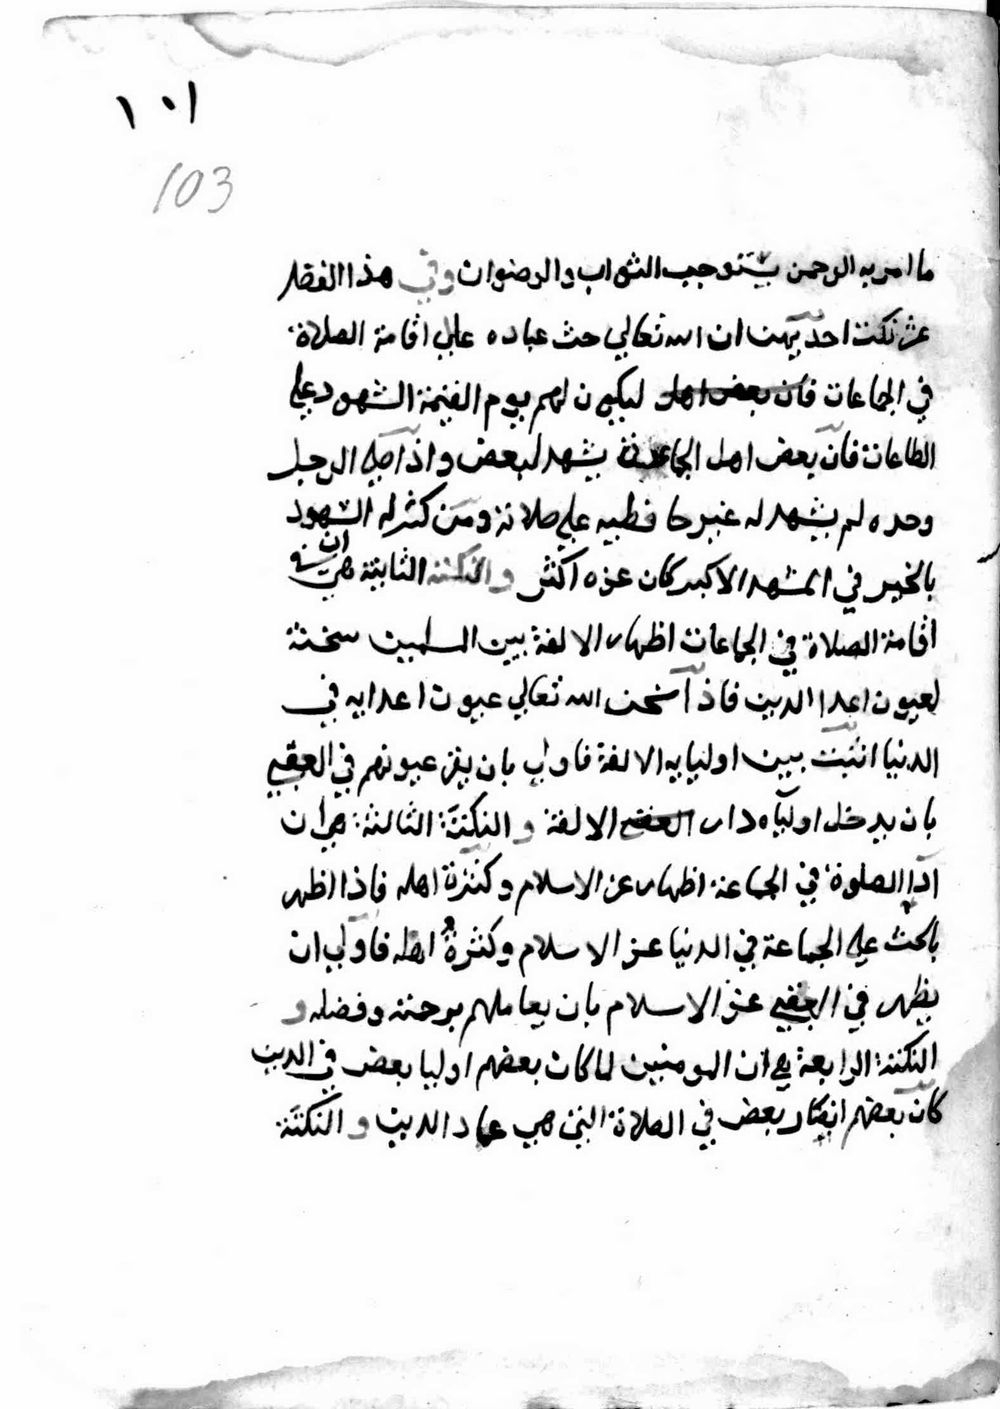 ١٠١
103
ما امر به الرحمن يستوجب الثواب والرضوان وفي هذا الفصل
عشر نكت احديهن ان الله تعالي حث عباده علي اقامة الصلاة
في الجماعات فان بعض اهل ليكون لهم يوم القيمة الشهود علي
الطاعات فان بعض اهل الجماعة يشهد لبعض واذا صلي الرجل
وحده لم يشهد له غير حافظيه علي صلاته ومن كثر له الشهود
بالخير في المشهد الاكبر كان عزه اكثر والنكتة الثانية هي ان في
اقامة الصلاة في الجماعات اظهار الالفة بين المسلمين سخنة
لعيون اعدا الدين فاذا اسخن الله تعالي عيون اعدايه في
الدنيا اثبت بين اوليايه الالفة فاولي بان يقر عيونهم في العقبي
بان يدخل اولياه دار العقبي الالفة والنكتة الثالثة هي ان
ادا الصلوة في الجماعة اظهار عز الاسلام وكثرة اهله فاذا اظهر
بالحث علي الجماعة في الدنيا عز الاسلام وكثرة اهله فاولي ان
يظهر في العقبي عز الاسلام بان يعاملهم برحمته وفضله و
النكتة الرابعة هي ان المومنين لما كان بعضهم اوليا بعض في الدين
كان بعضهم انصار بعض في الصلاة التي هي عماد الدين والنكتة